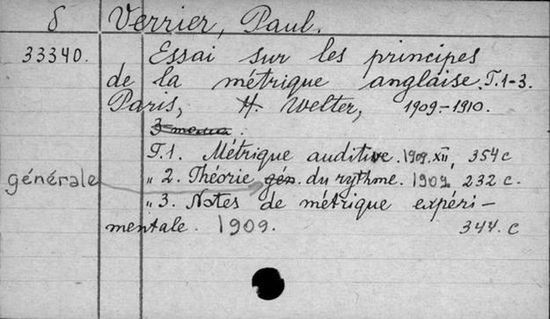 8 Verrier, Paul.
33340. Essai sur les principes
de la métrique anglaise. T.1-3.
Paris, H. Welter, 1909-1910.
T.1. Métrique auditive. 1909. XII, 354 c
générale „ 2. Théorie gén. du rythme. 1909. 232 c.
„ 3. Notes de métrique expéri-
mentale. 1909. 344. c